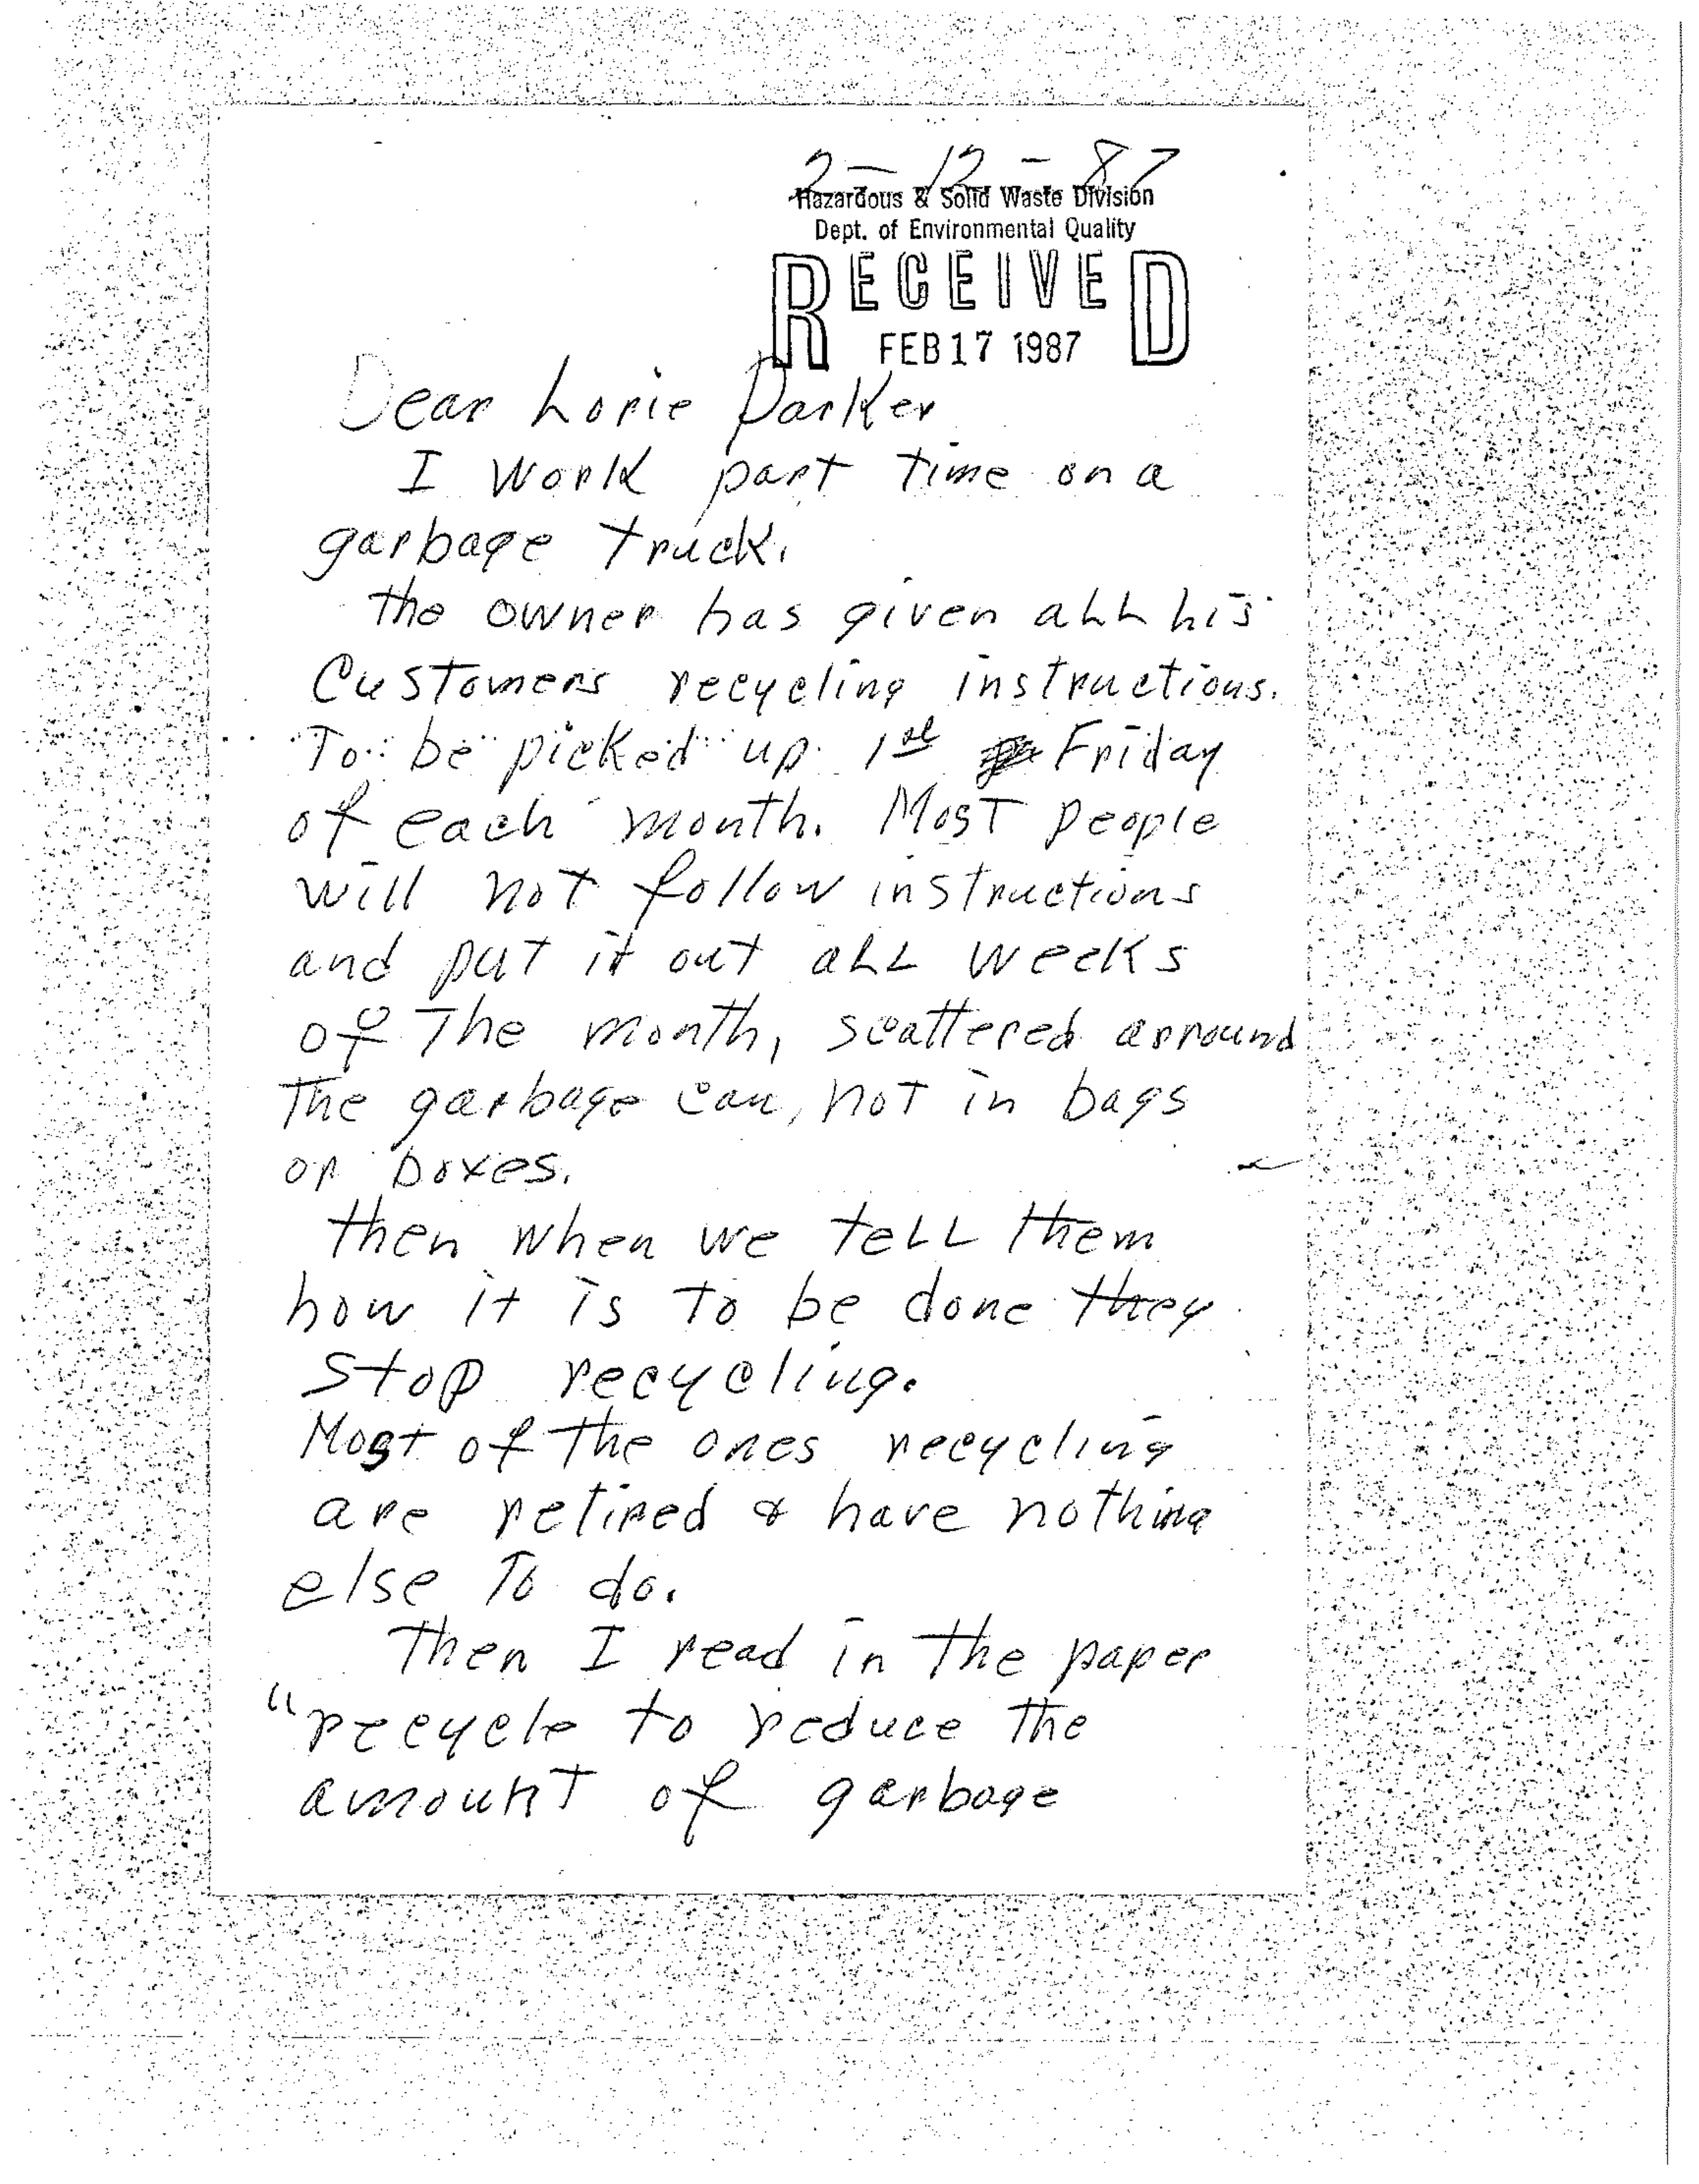 2-12-87
Hazardous & Solid Waste Division
Dept. of Environmental Quality
RECEIVED
FEB 17 1987
Dear Lorie Parker
I work part time on a
garbage truck.
the owner has given aLL his
Customers recycling instructions.
To be picked up 1st Friday
of each month. Most people
will not follow instructions
and put it out aLL weeks
of The month, scattered arround
The garbage can, not in bags
or boxes.
then when we teLL them
how it is to be done they
stop recycling.
Most of the ones recycling
are retired & have nothing
else To do.
Then I read in the paper
"recycle to reduce the
amount of garbage